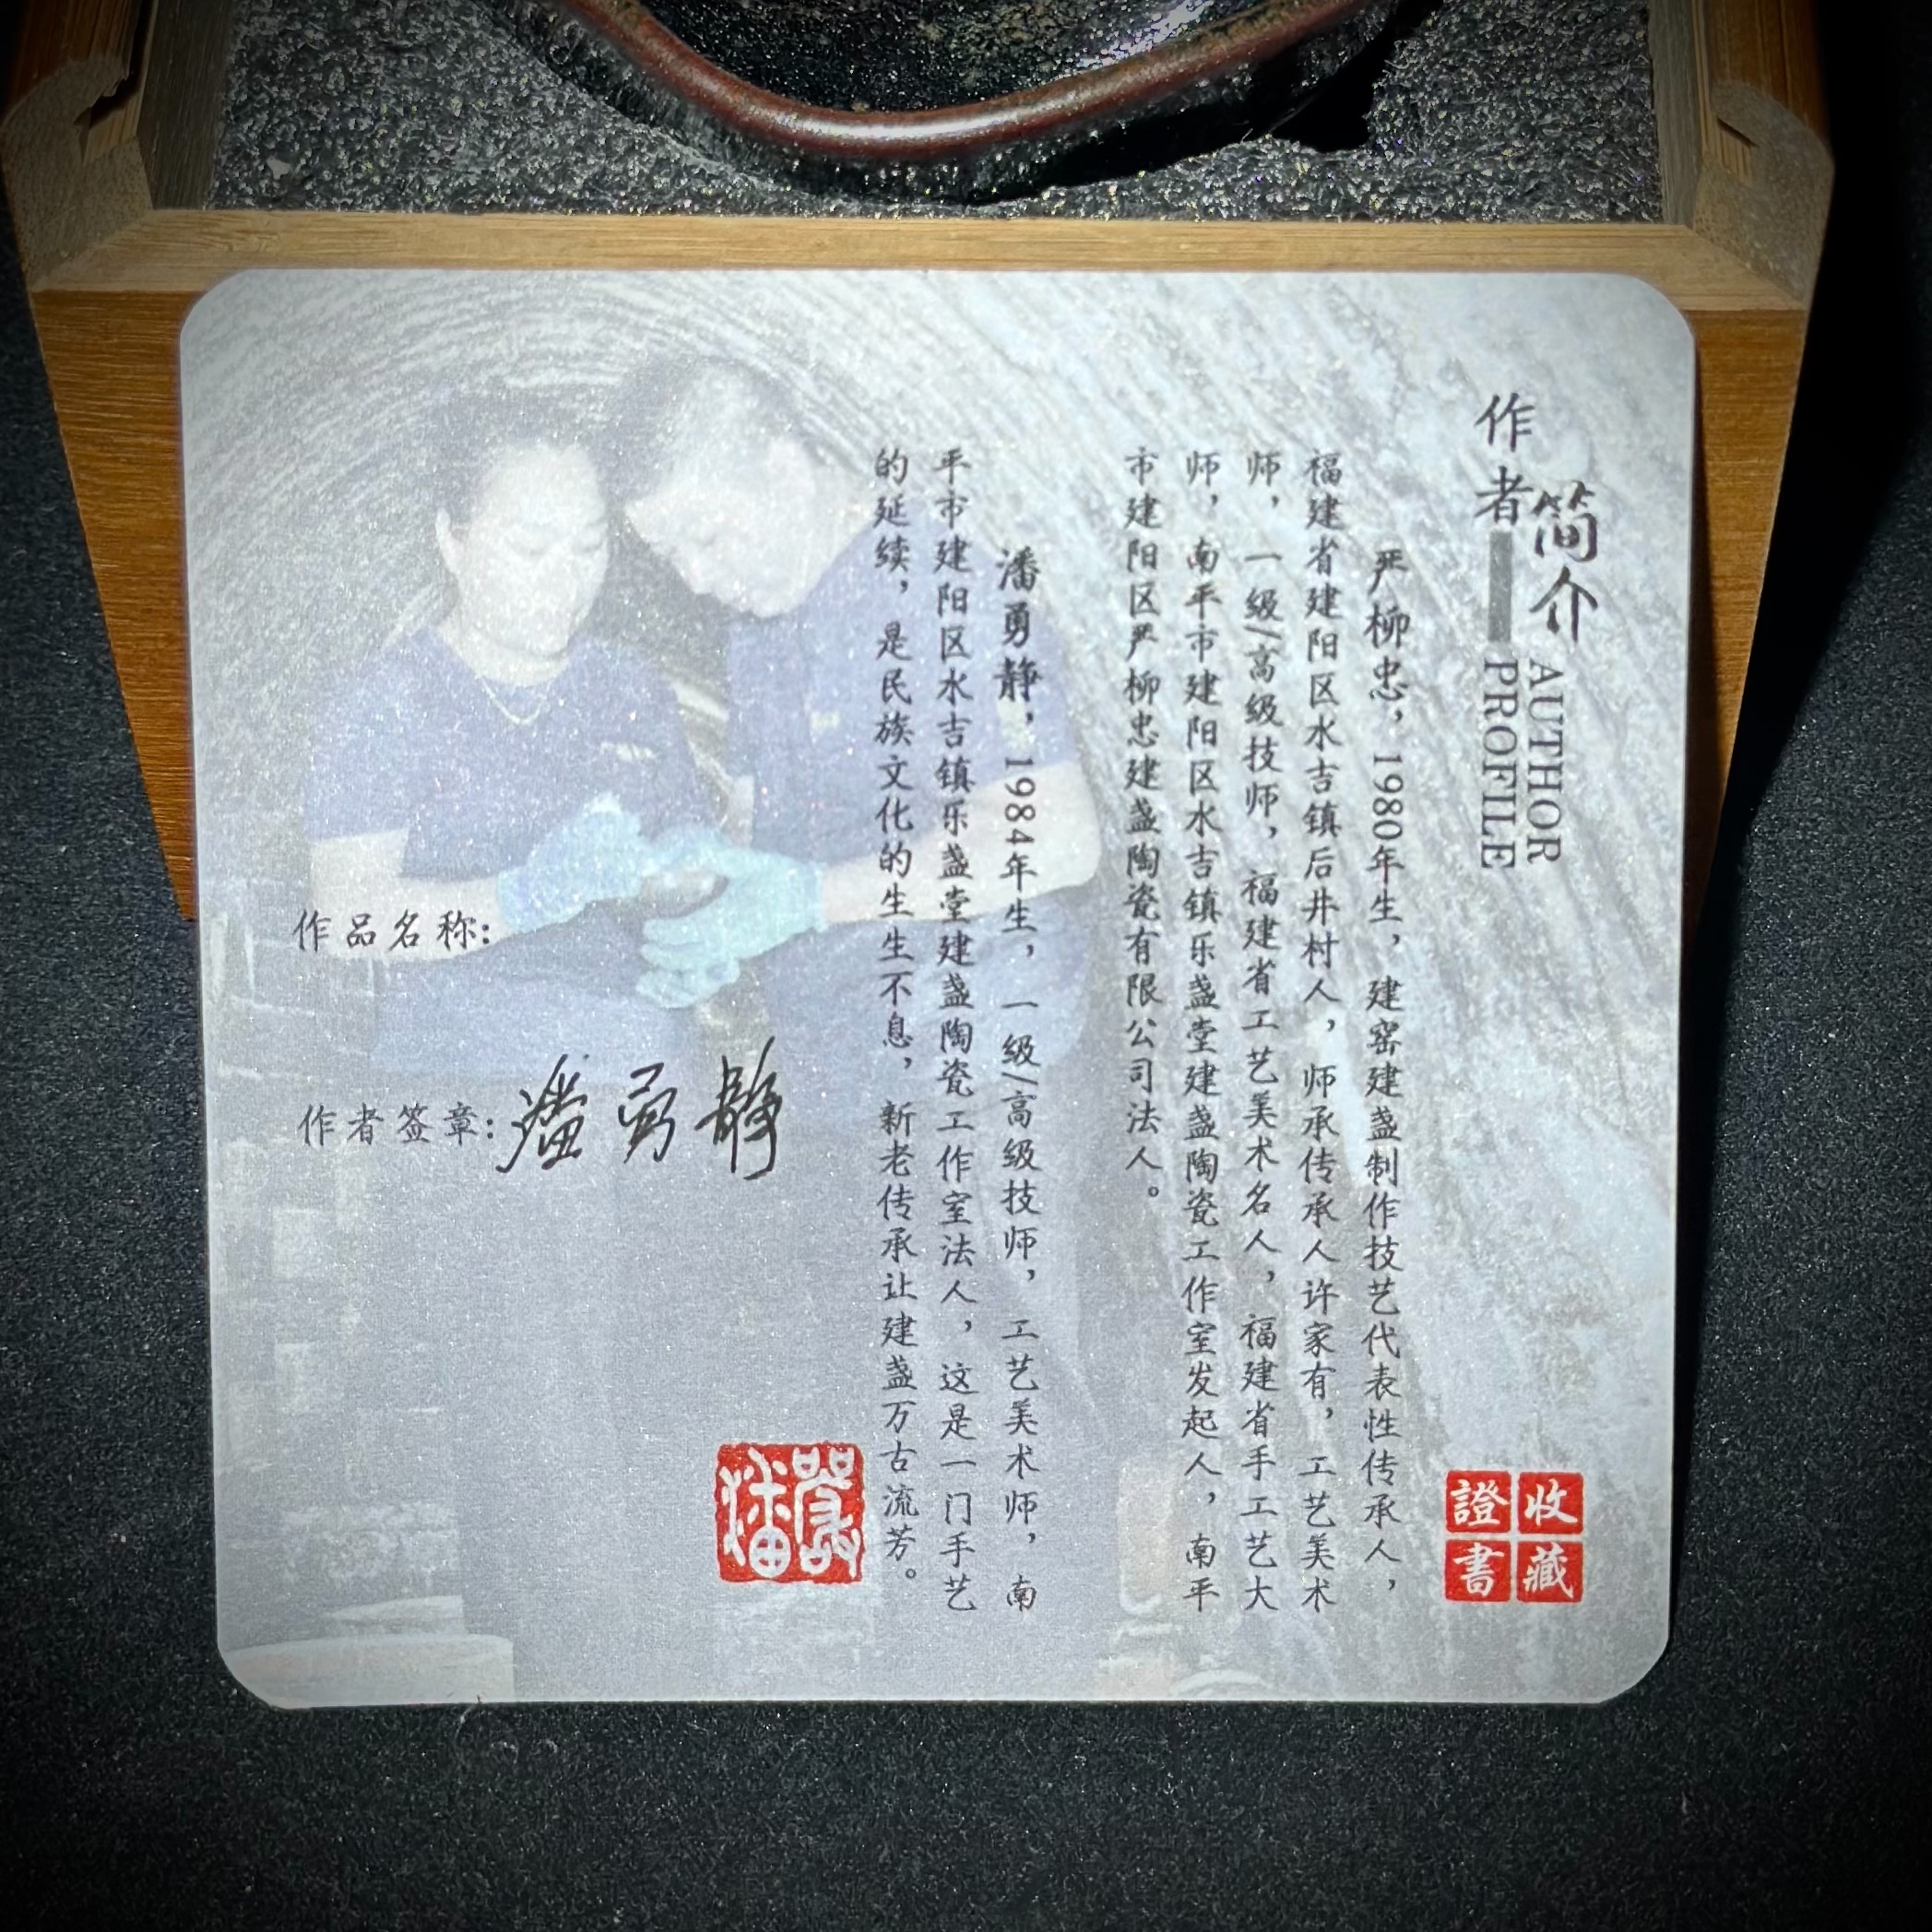 作者简介
AUTHOR
PROFILE
严柳忠，1980年生，建窑建盏制作技艺代表性传承人，
福建省建阳区水吉镇后井村人，师承传承人许家有，工艺美术
师，一级/高级技师，福建省工艺美术名人，福建省手工艺大
师，南平市建阳区水吉镇乐盏堂建盏陶瓷工作室发起人，南平
市建阳区严柳忠建盏陶瓷有限公司法人。
潘勇静，1984年生，一级/高级技师，工艺美术师，南
平市建阳区水吉镇乐盏堂建盏陶瓷工作室法人，这是一门手艺
的延续，是民族文化的生生不息，新老传承让建盏万古流芳。
作品名称：
作者签章：潘勇静
收藏
證書